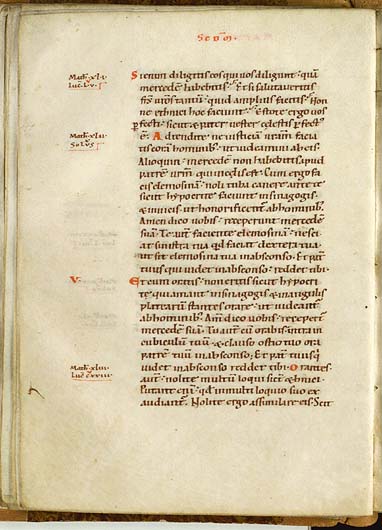 Sc̄dm̄
Math·xli·
luc̄·lv·
Si enim diligitis eos qui vos diligunt · quā
mercedē habebitis? Et si salutaveritis
fr̄s vr̄os tantū · quid amplius facitis? Non
ne ethnici hoc faciunt? Estote ergo vos
p̄fecti · sicut & pater vester celestis p̄fect'
Math·xlii·
Solus·
ē. Adtendite ne iusticiā vr̄am facia
tis corā hominib: ut videamini ab eis.
Alioquin mercedē non habebitis apud
patrē vr̄m qui in celis est. Cum ergo fa
cis elemosinā · noli tuba canere ante te
sicut hypocrite faciunt in sinagogis
& in vicis ut honorificent' ab hominib:
Amen dico vobis · receperunt mercedē
suā. Te aut̄ faciente elemosinā · nesci
at sinistra tua qd̄ faciat dextera tua
ut sit elemosina tua in absconso. Et pat̄
tuus qui videt in absconso · reddet tibi·
V·
Et cum oratis · non eritis sicut hypoc
rite qui amant in sinagogis & in angulis
platearū stantes orare · ut videant'
ab hominib: Am̄ dico vobis · recepert̄
mercedē suā. Tu aut̄ cū orabis · intra in
cubiculū tuū & clauso ostio tuo ora
patrē tuū in absconso; Et pat̄ tuus q̇
Math·xliii·
luc̄ cxxiii·
videt in absconso reddet tibi· Orantes
aut̄ · nolite multū loqui sicut & hnici·
Putant eni · qd̄ in multiloquio suo ex
audiant'. Nolite ergo assimilare eis· Scit